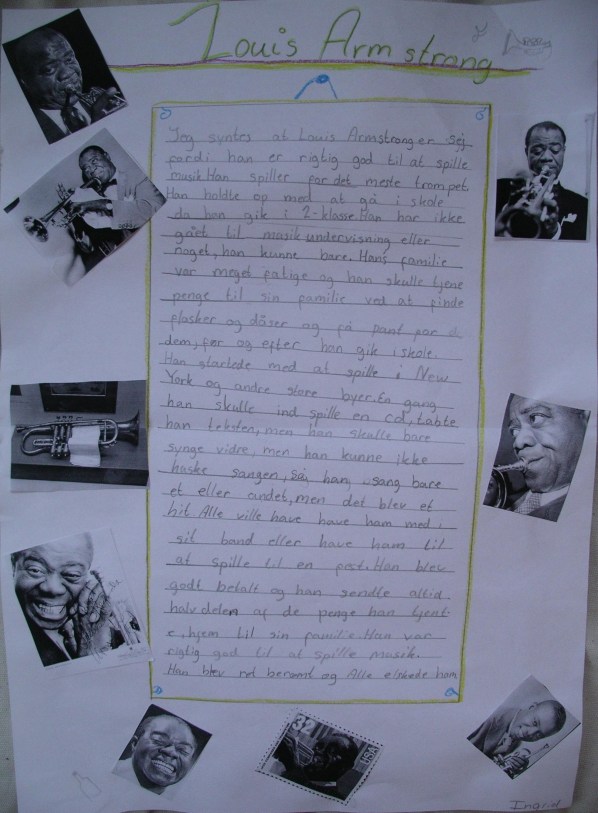 Louis Armstrong
Jeg syntes at Louis Armstrong er sej
fordi han er rigtig god til at spille
musik. Han spiller for det meste trompet.
Han holdte op med at gå i skole
da han gik i 2-klasse. Han har ikke
gået til musikundervisning eller
noget, han kunne bare. Hans familie
var meget fatige og han skulle tjene
penge til sin familie ved at finde
flasker og dåser og få pant for
dem, før og efter han gik i skole.
Han startede med at spille i New
York og andre store byer. En gang
han skulle ind spille en cd, tabte
han teksten, men han skulle bare
synge vidre, men han kunne ikke
huske sangen, så han sang bare
et eller andet, men det blev et
hit. Alle ville have have ham med i
sit band eller have ham til
at spille til en fest. Han blev
godt betalt og han sendte altid
halvdelen af de penge han tjent-
e, hjem til sin familie. Han var
rigtig god til at spille musik.
Han blev ret berømt og Alle elskede ham
32
USA
Ingrid